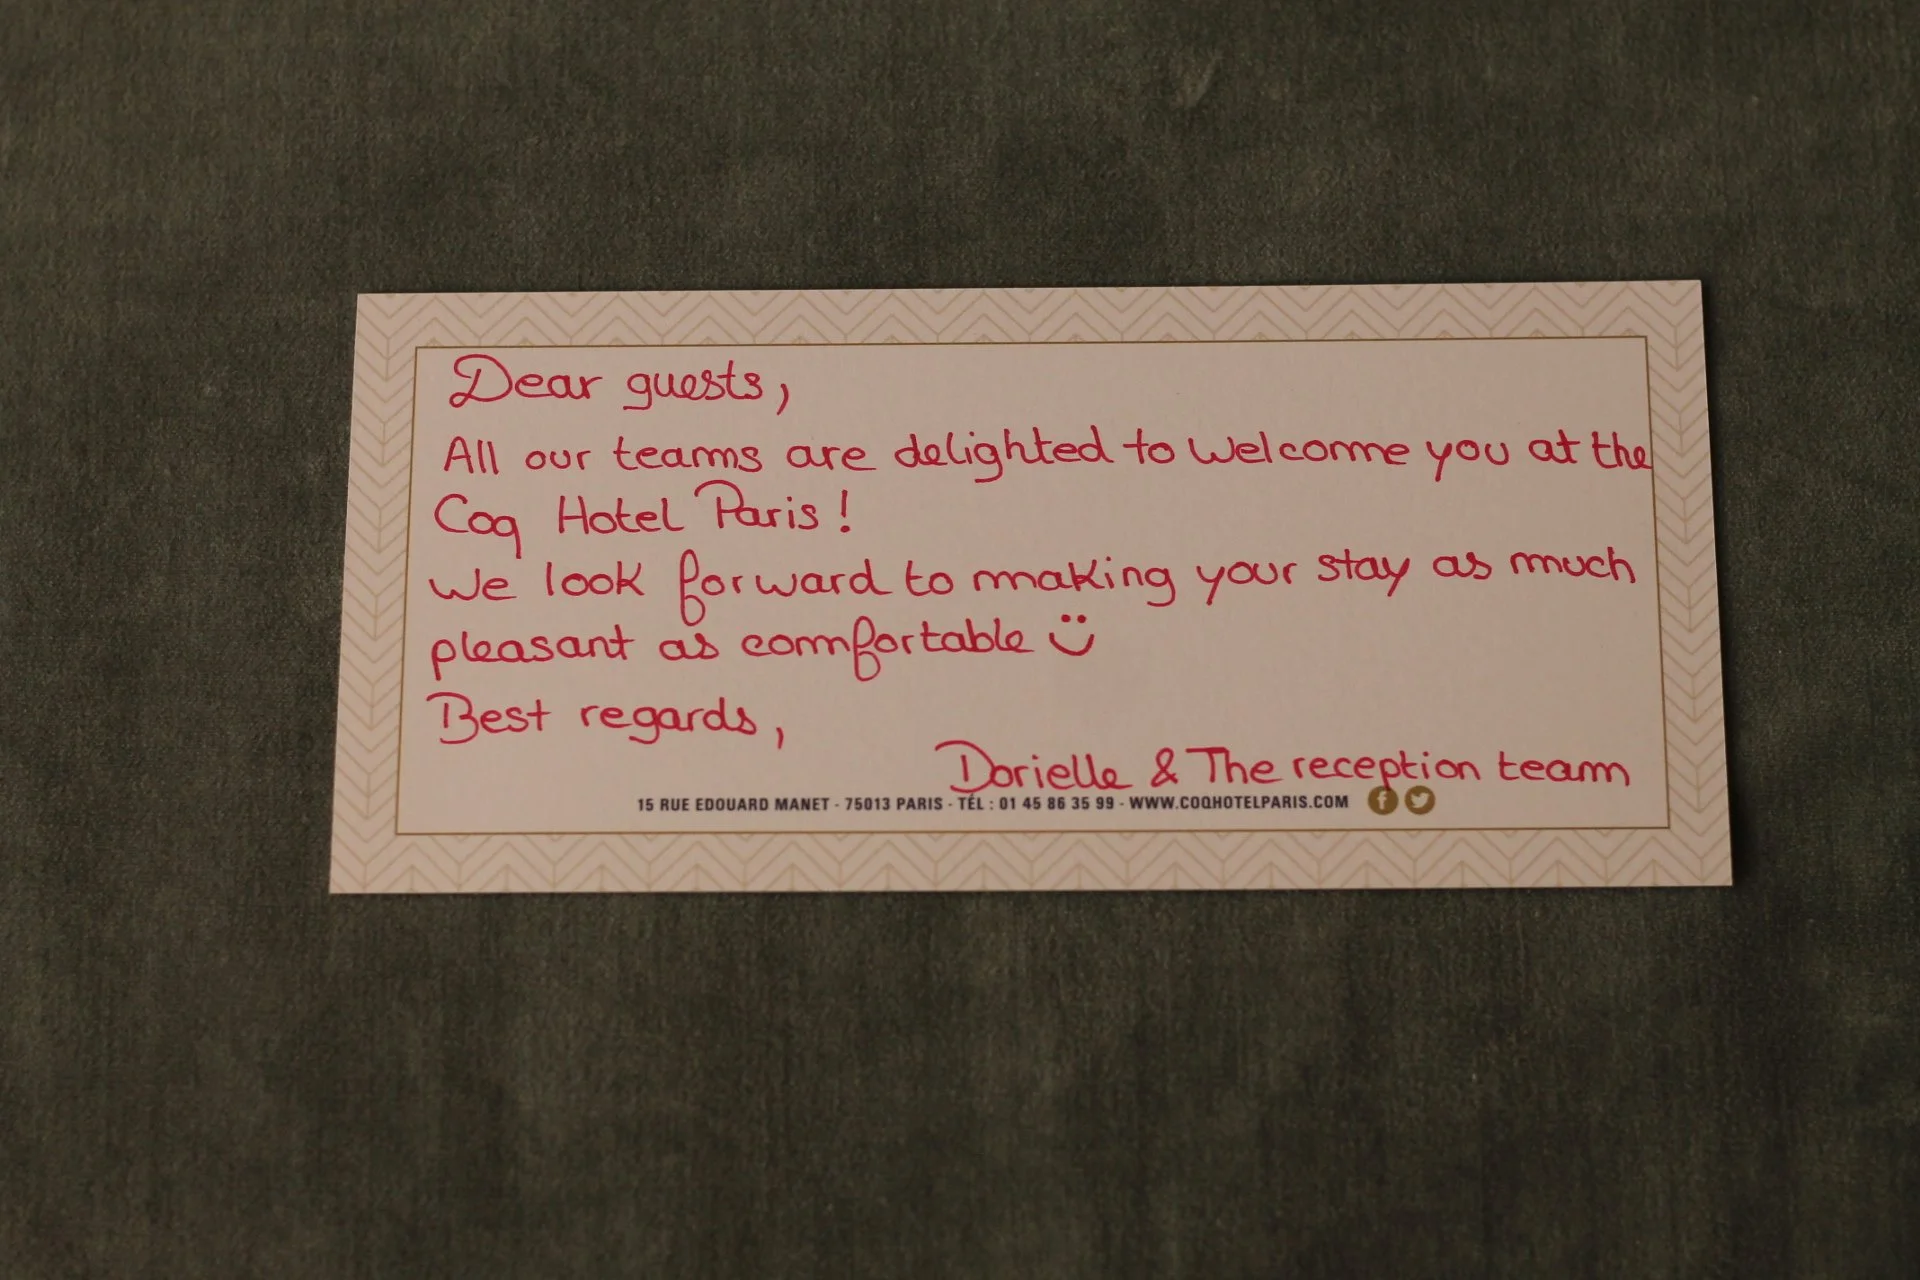 Dear guests,
All our teams are delighted to welcome you at the
Coq Hotel Paris !
We look forward to making your stay as much
pleasant as comfortable ü
Best regards,
Dorielle & The reception team
15 RUE EDOUARD MANET - 75013 PARIS - TÉL : 01 45 86 35 99 - WWW.COQHOTELPARIS.COM